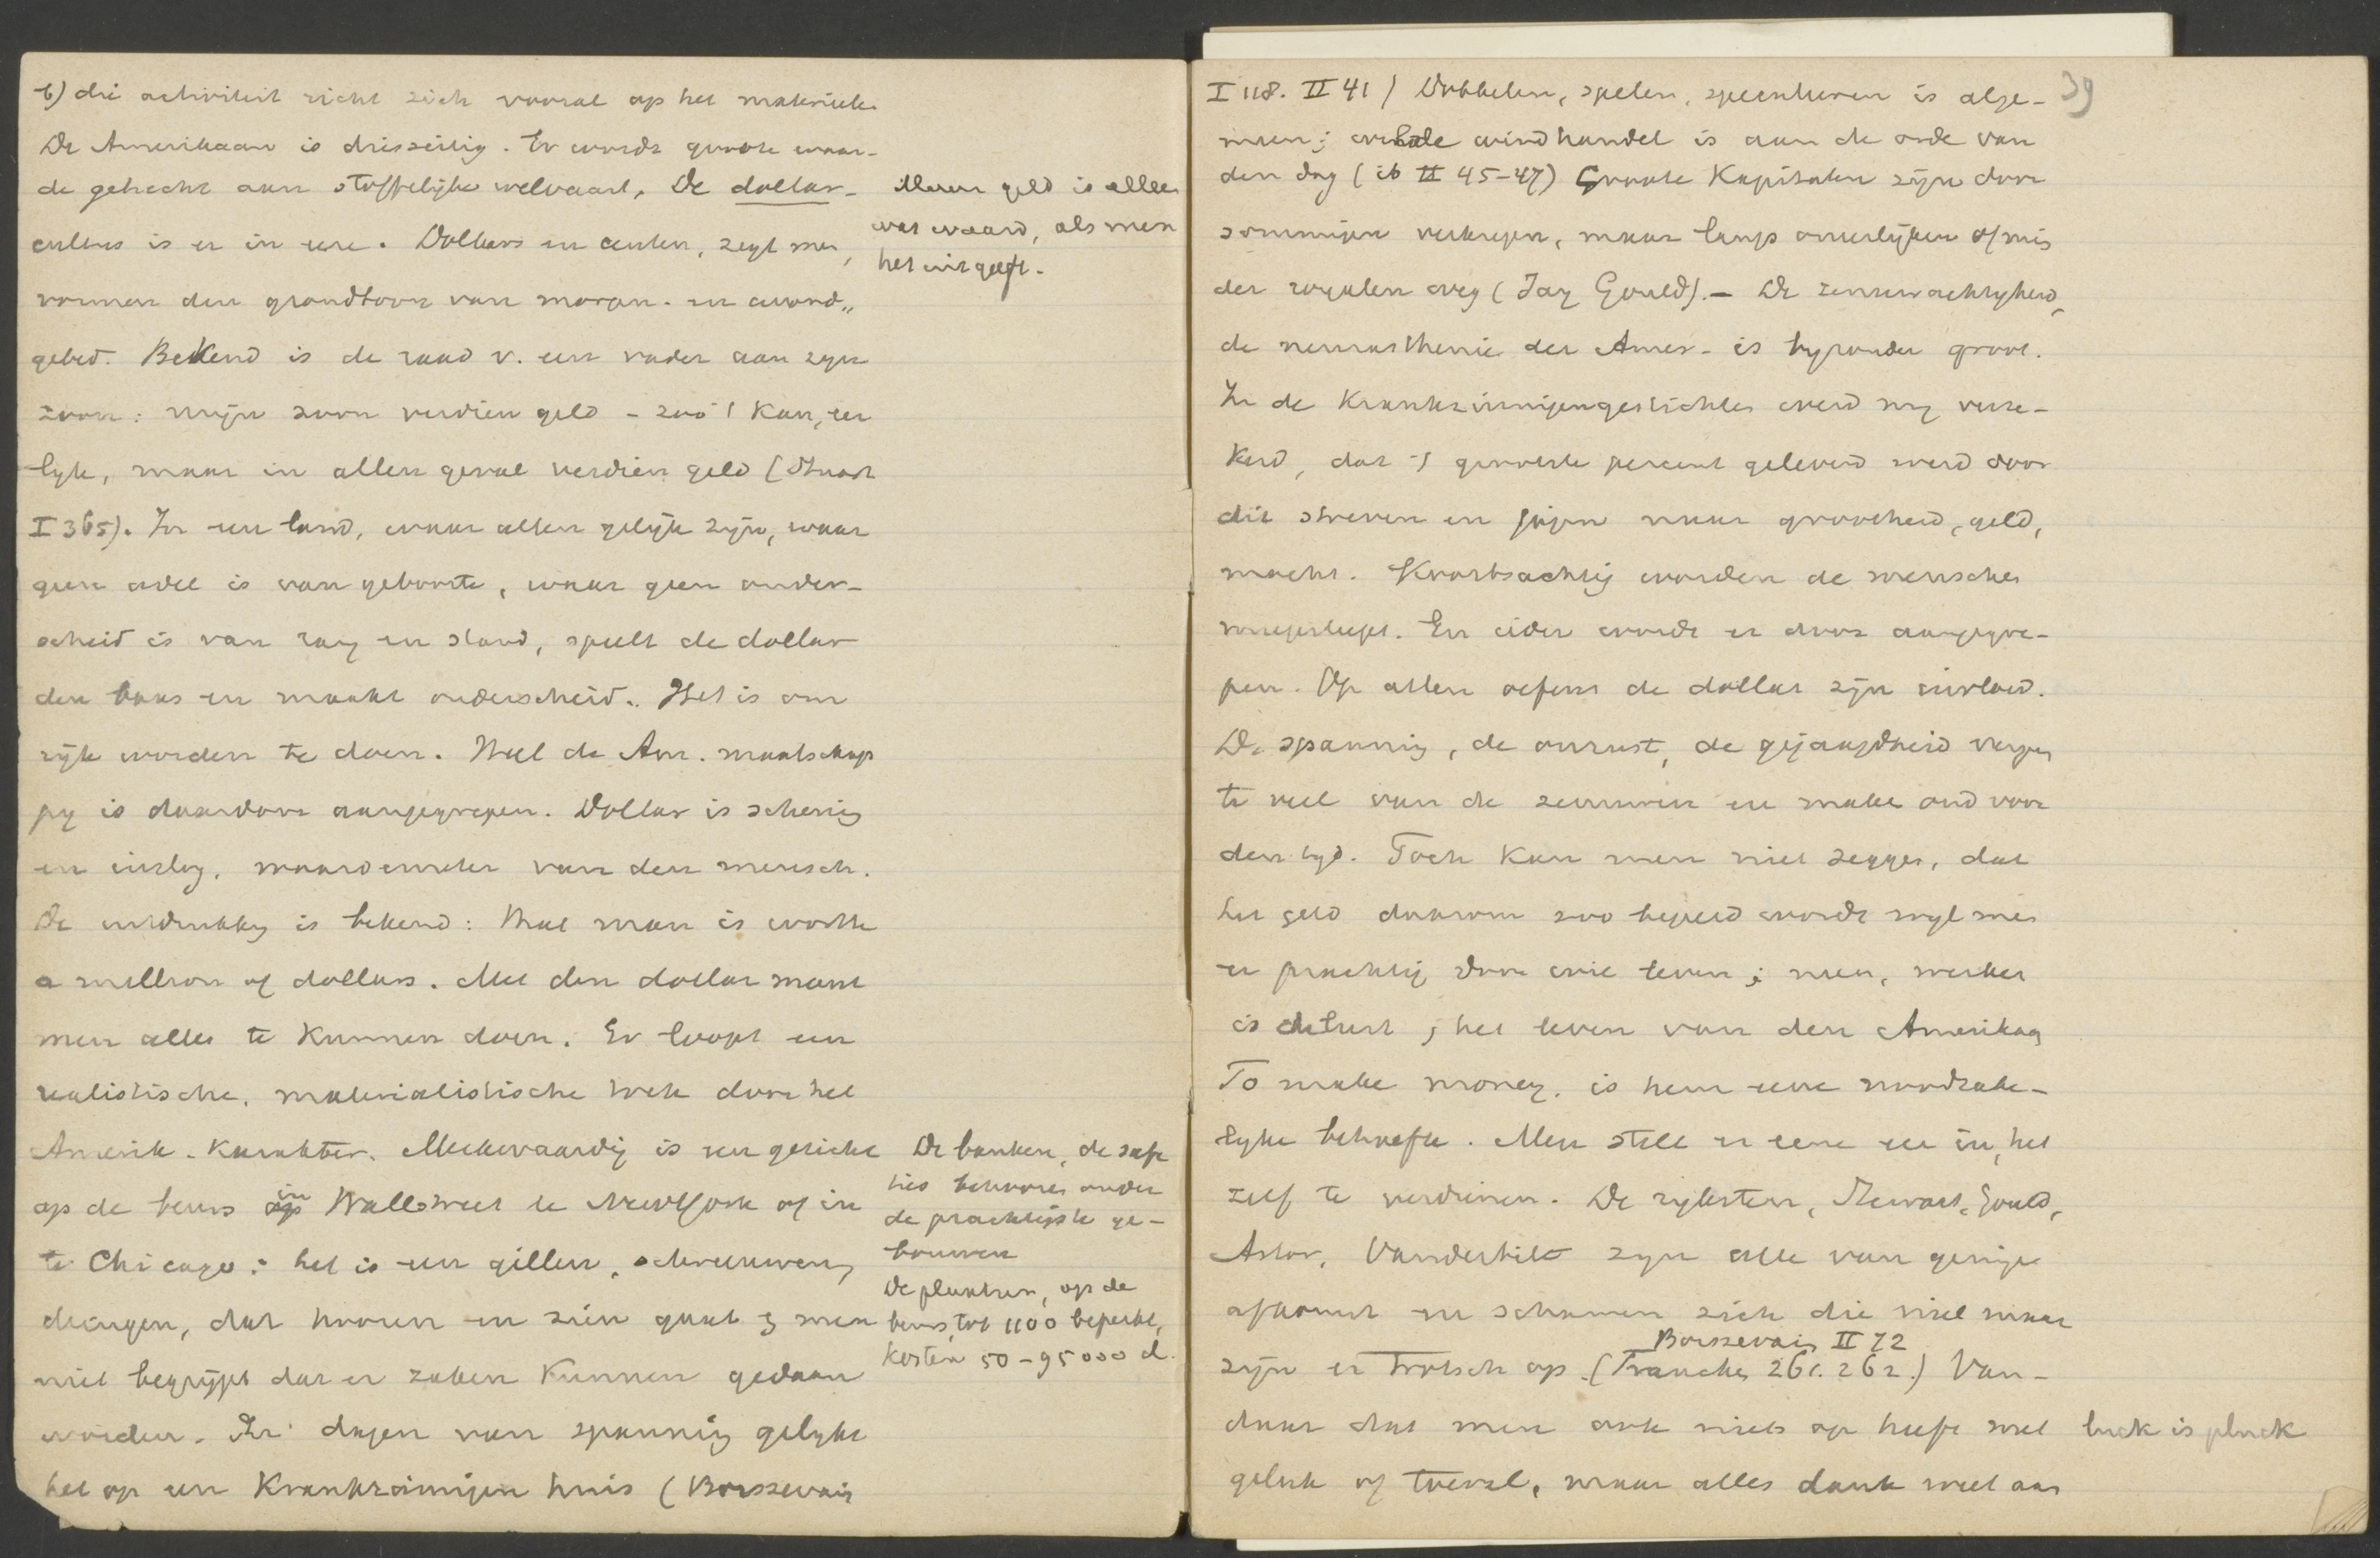 b) die activiteit richt zich vooral op het materieele
De Amerikaan is driezeitig. Er wordt groote waar-
de gehecht aan stoffelijke welvaart. De dollar-
cultus is er in eere. Dollars en centen, zegt men,
vormen den grondtoon van morgen- en avond„
gebed. Bekend is de raad v. een vader aan zyn
zoon: mijn zoon verdien geld – zoo 't kan, eer
lyk, maar in allen geval verdien geld (Stuart
I 365). In een land, waar allen gelijk zijn, waar
geen adel is van geboorte, waar geen onder-
scheid is van rang en stand, speelt de dollar
den baas en maakt onderscheid. Het is om
rijk worden te doen. Heel de Am. maatschap
py is daardoor aangegrepen. Dollar is schering
en inslag, waardemeter van den mensch.
De uitdrukking is bekend: that man is worth
a million of dollars. Met den dollar meent
men alles te kunnen doen. Er loopt een
realistische, materialistische trek door het
Amerik. karakter. Merkwaardig is een gezicht
op de beurs in Wallstreet te NewYork of in
te Chicago: het is een gillen, schreeuwen,
dringen, dat hooren en zien gaat & men
niet begrijpt dat er zaken kunnen gedaan
worden. In dagen van spanning gelykt
het op een krankzinnigen huis (Boissevain
Maar geld is alleen
wat waard, als men
het uitgeeft.
De banken, de safe
ties behooren onder
de prachtigste ge-
bouwen
De plaatsen, op de
beurs, tot 1100 beperkt,
kosten 50–95000 d.
39
I 118. II 41) Dobbelen, spelen, speculeeren is alge-
meen; windhandel is aan de orde van
den dag (ib II 45–47) Groote kapitalen zijn door
sommigen verkregen, maar langs oneerlijken of mis
der royalen weg (Jay Gould). – De zenuwachtigheid,
de neurasthenie der Amer. is byzonder groot.
In de krankzinnigengestichten werd my verze-
kerd, dat 't grootste percent geleverd werd door
dit streven en jagen naar grootheid, geld,
macht. Koortsachtig worden de menschen
voortgesleept. En ieder wordt er door aangegre-
pen. Op allen oefent de dollar zijn invloed.
De spanning, de onrust, de gejaagdheid vergen
te veel van de zenuwen en make oud voor
den tyd. Toch kan men niet zeggen, dat
het geld daarom zoo begeerd wordt wyl men
er prachtig door wil leven; neen, werken
is de lust, het leven van den Amerikaan
To make money. is hem eene noodzake-
lyke behoefte. Men stelt er eene eer in, het
zelf te verdienen. De rijksten, Stewart, Gould,
Astor, Vanderbilt zyn alle van geringe
afkomst en schamen zich die niet maar
Boissevain II 72
zijn er trotsch op. (Francke, 261. 262.) Van-
daar dat men ook niets op heeft met
geluk of toeval, maar alles dank weet aan
luck is pluck